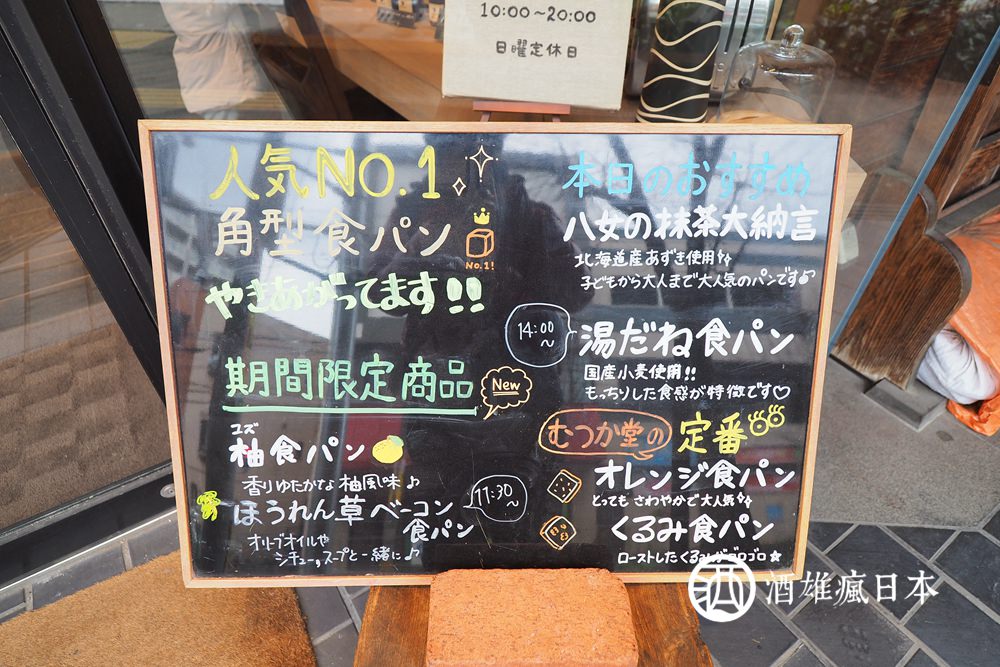 10:00〜20:00
日曜定休日
人気NO.1
角型食パン
No.1!
やきあがってます!!
期間限定商品
New
ユズ
柚食パン
香りゆたかな柚風味♪
11:30〜
ほうれん草ベーコン
食パン
オリーブオイルや
シチュー,スープと一緒に♪
本日のおすすめ
八女の抹茶大納言
北海道産あずき使用
子どもから大人まで大人気のパンです♪
14:00〜
湯だね食パン
国産小麦使用!!
もっちりした食感が特徴です♡
むつか堂の定番
オレンジ食パン
とってもさわやかで大人気
くるみ食パン
ローストしたくるみがゴロゴロ☆
酒雄瘋日本